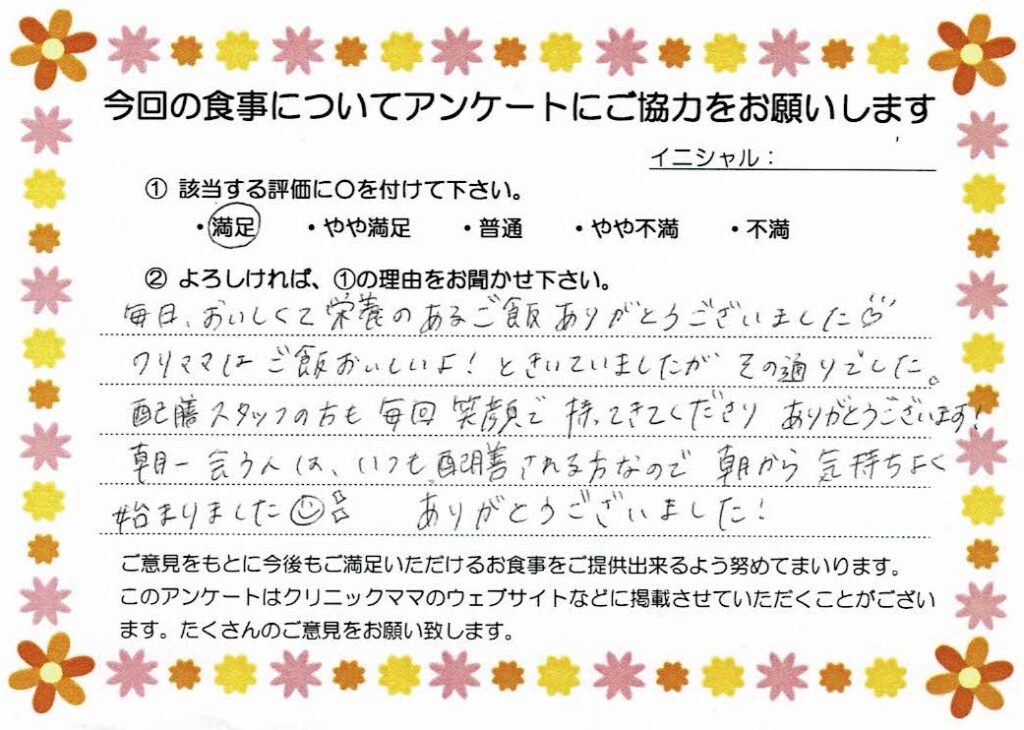 今回の食事についてアンケートにご協力をお願いします
イニシャル：
① 該当する評価に〇を付けて下さい。
・満足 ・やや満足 ・普通 ・やや不満 ・不満
② よろしければ、①の理由をお聞かせ下さい。
毎日、おいしくて栄養のあるご飯ありがとうございました
クリママはご飯おいしいよ！ときいていましたがその通りでした。
配膳スタッフの方も毎回笑顔で持ってきてくださりありがとうございます！
朝一会う人は、いつも配膳される方なので朝から気持ちよく
始まりました ありがとうございました！
ご意見をもとに今後もご満足いただけるお食事をご提供出来るよう努めてまいります。
このアンケートはクリニックママのウェブサイトなどに掲載させていただくことがござい
ます。たくさんのご意見をお願い致します。